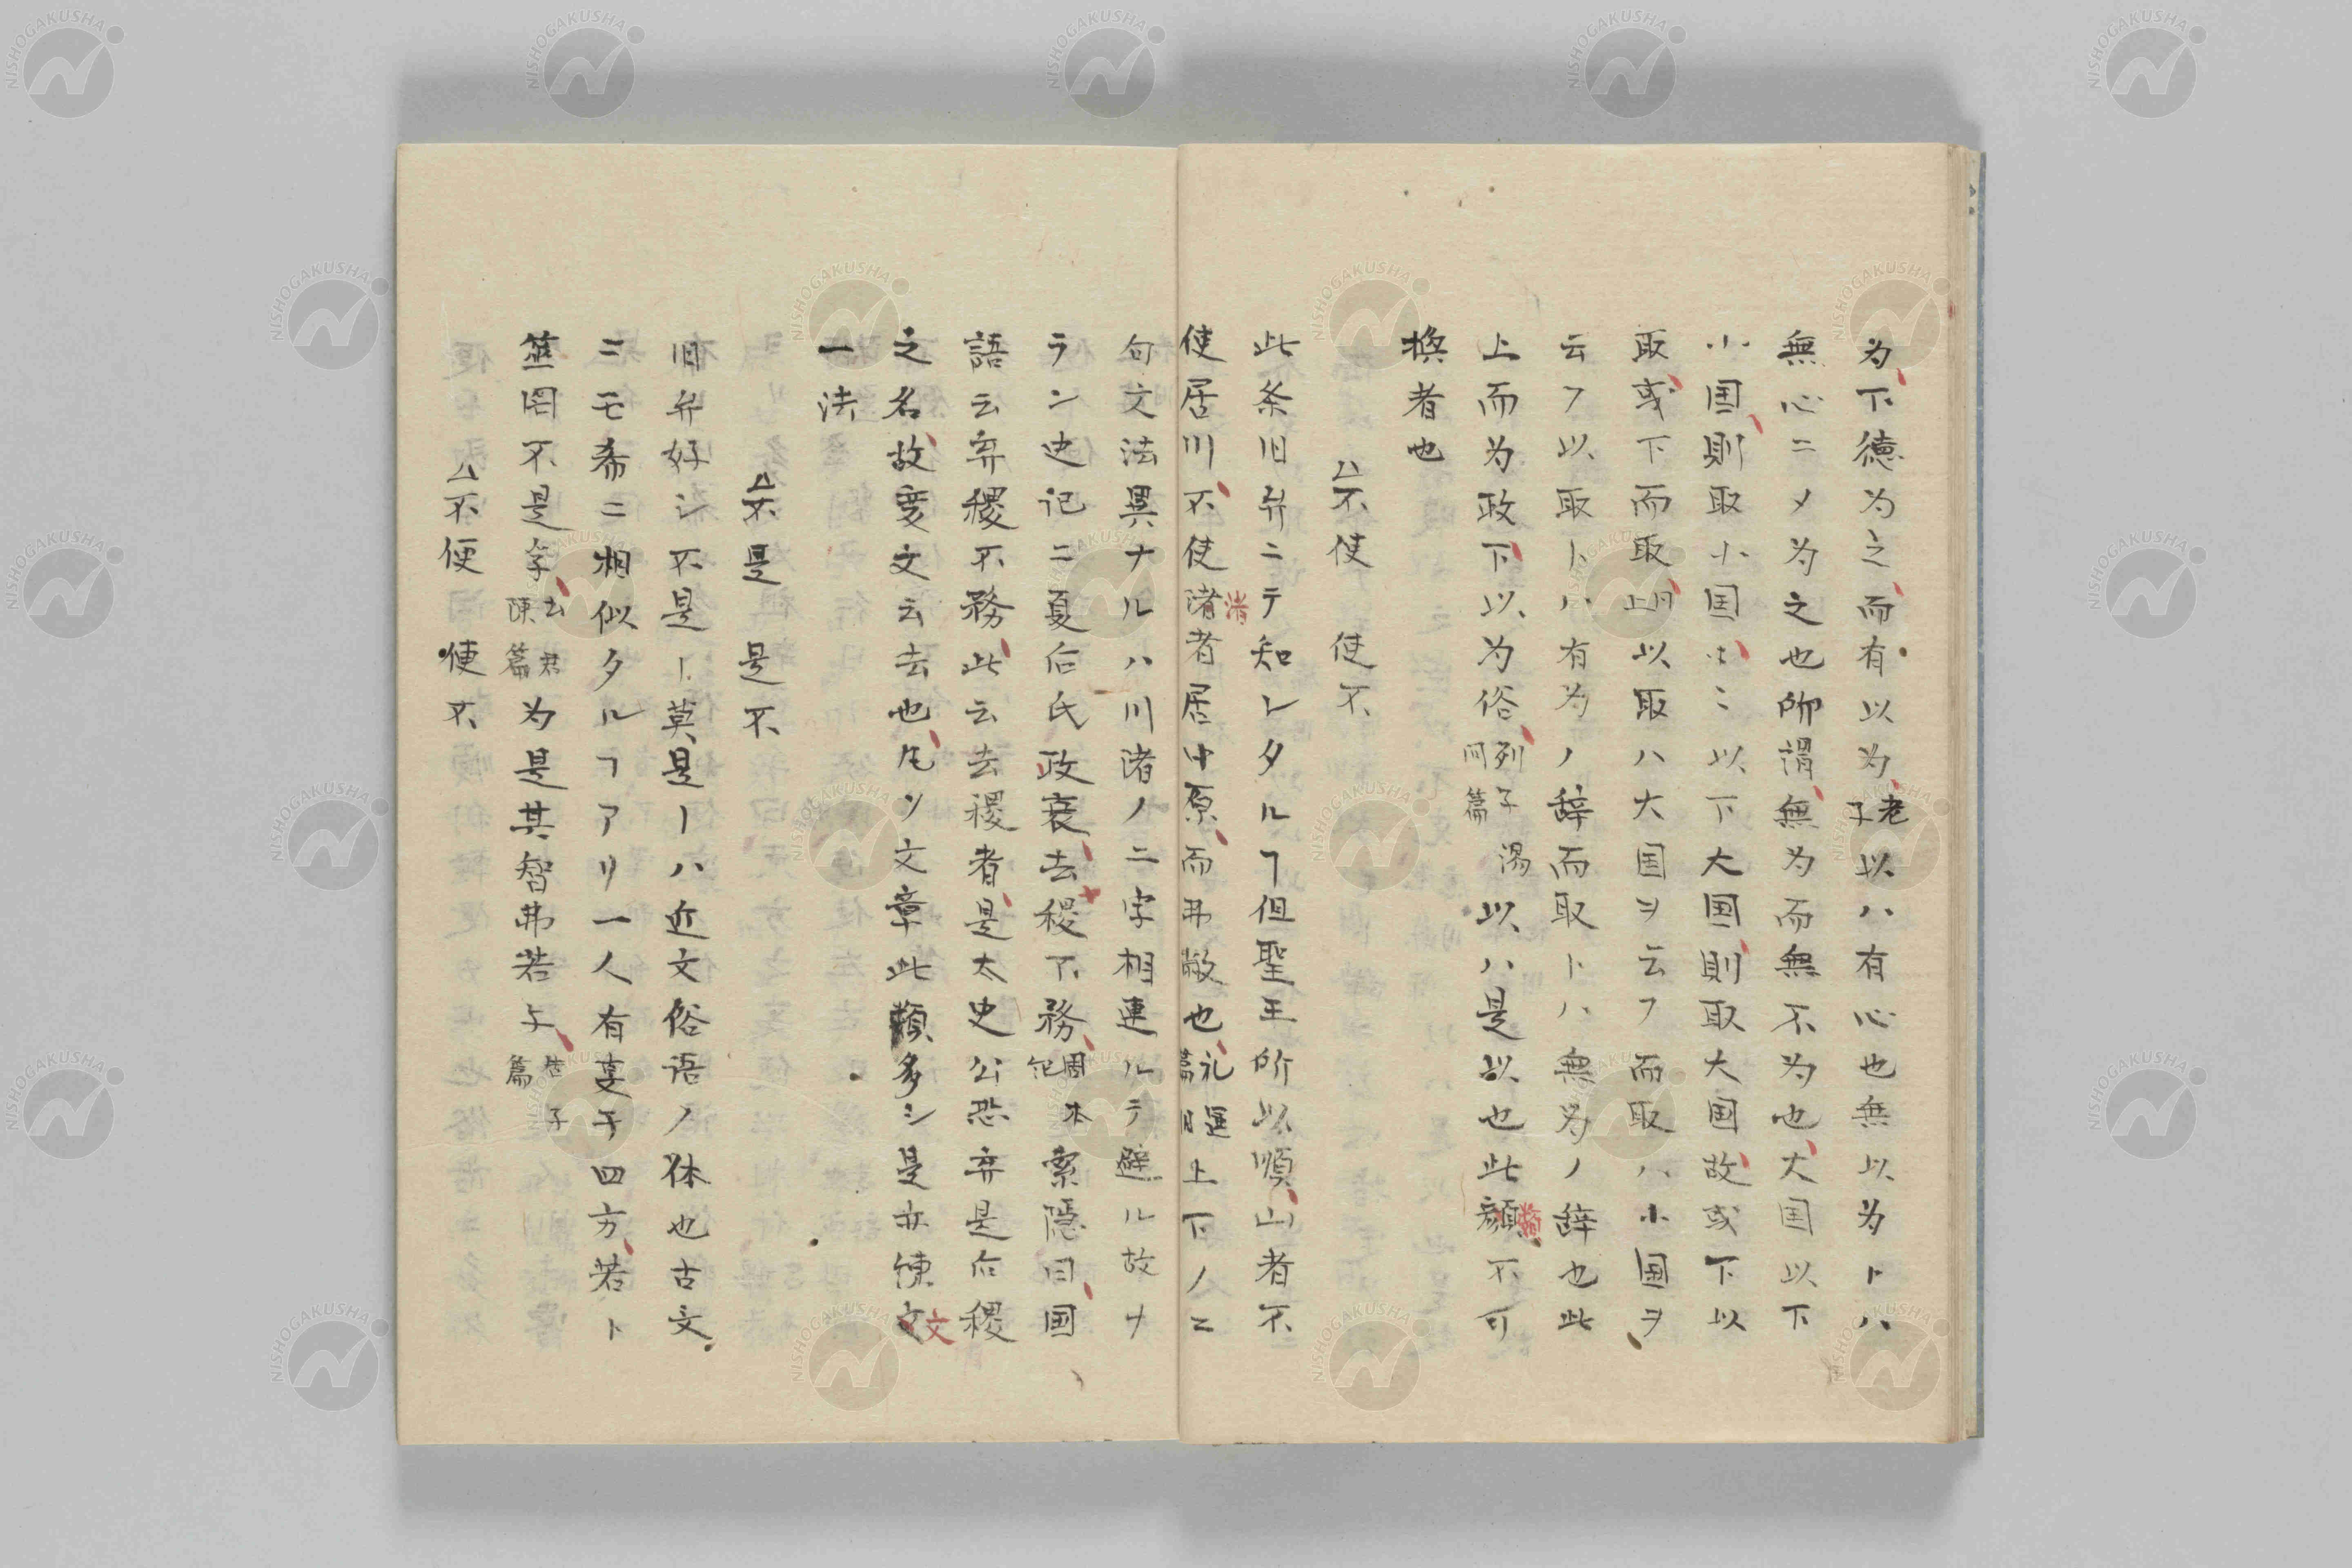 为下徳为之而有以为老子以ハ有心也無以为トハ
無心ニメ为之也所謂無为而無不为也大国以下
小国則取小国小ニ以下大国則取大国故或下以
取或下而取上以取ハ大国ヲ云フ而取ハ小国ヲ
云フ以取トハ有为ノ辞而取トハ無为ノ辞也此
上而为政下以为俗列子問篇湯以ハ是以也此顔不可
換者也
△不使 使不
此条旧弁ニテ知レタルヿ但聖王所以順山者不
使居川不使渚者居中原而弗敝也礼運篇上下ノ二
句文法異ナルハ川渚ノ二字相連ルヲ避ル故ナ
ラン史记ニ夏后氏政衰去稷不務周本紀索隠曰国
語云弃稷不務此云去稷者是太史公恐弃是后稷
之名故变文云去也凡ソ文章此類多シ是亦錬文
一法
△不是 是不
旧弁好シ不是ト莫是ーハ近文俗语ノ体也古文
ニモ希ニ相似タルヿアリ一人有事于四方若ト
筮罔不是孚君陳篇为是其智弗若与告子篇
△不便 便不